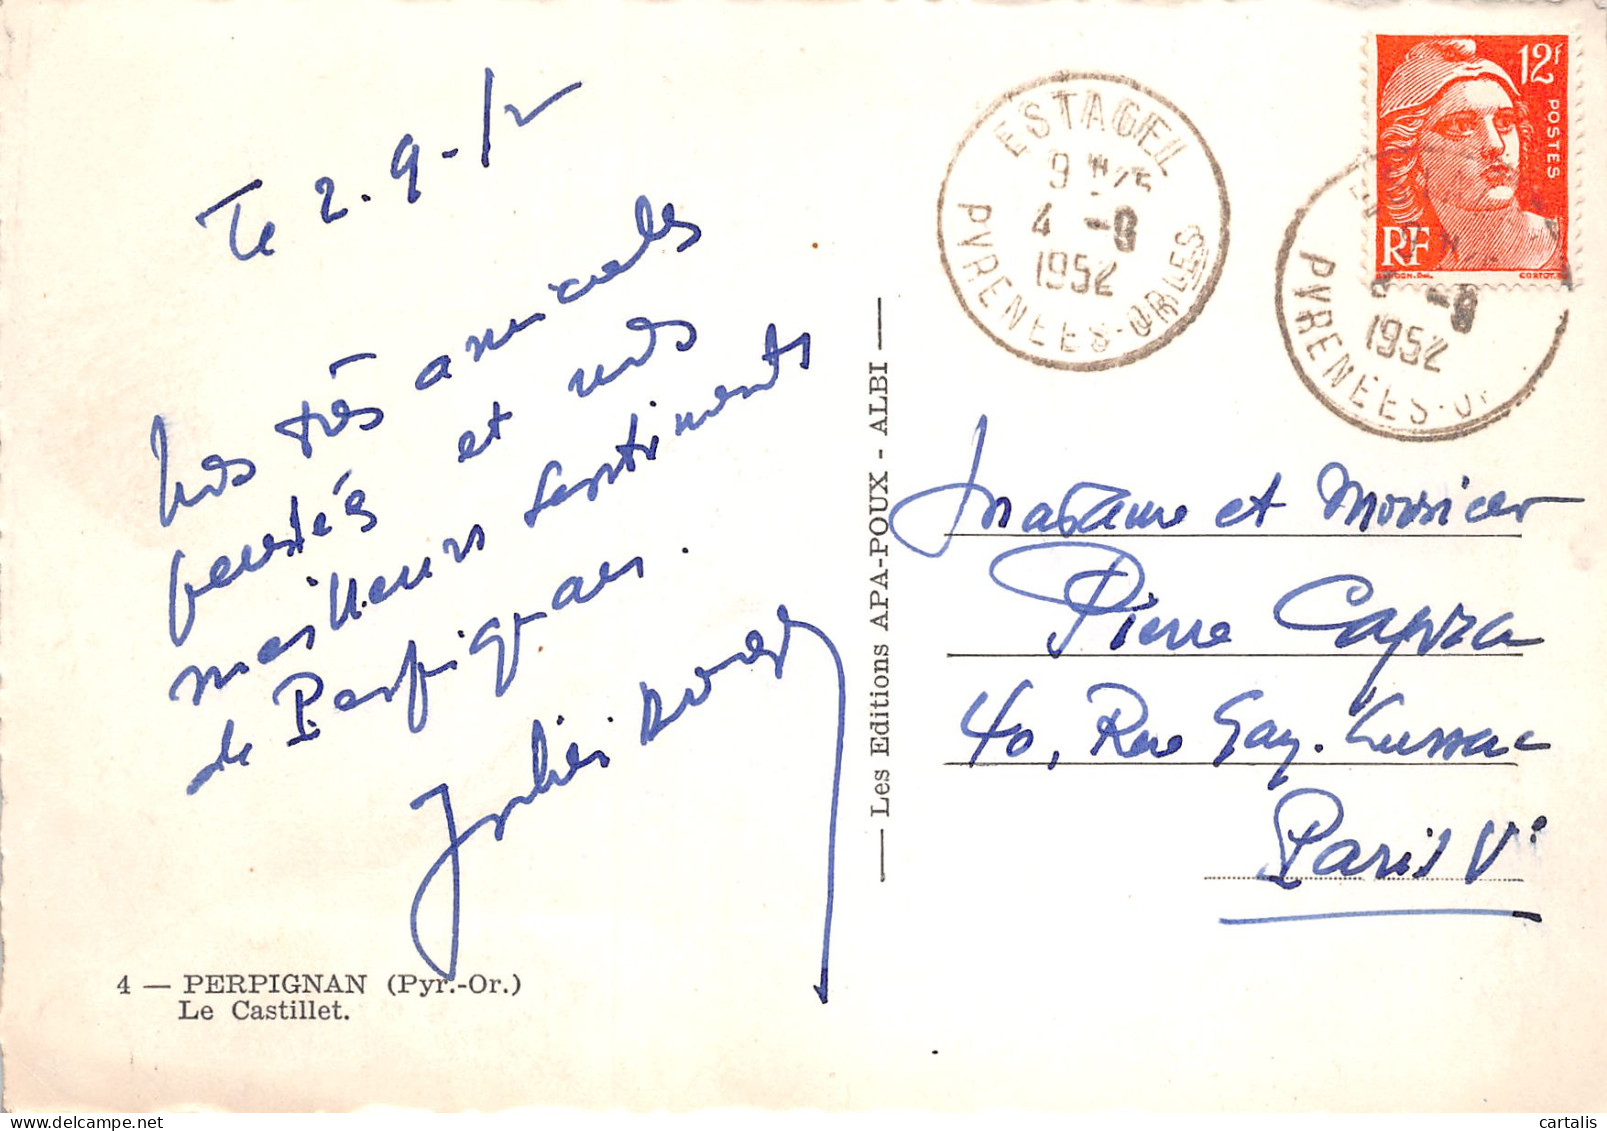 Le 2.9-52
Nos très amicales
pensées et nos
meilleurs sentiments
de Perpignan.
4 — PERPIGNAN (Pyr.-Or.)
Le Castillet.
Les Editions APA-POUX - ALBI
ESTAGEL
9 H 45
4 -9
1952
PYRENEES-ORLES
12f
POSTES
RF
-9
1952
PYRENEES-OR
Madame et Monsieur
Pierre Capra
40, Rue Gay-Lussac
Paris Ve
cartalis